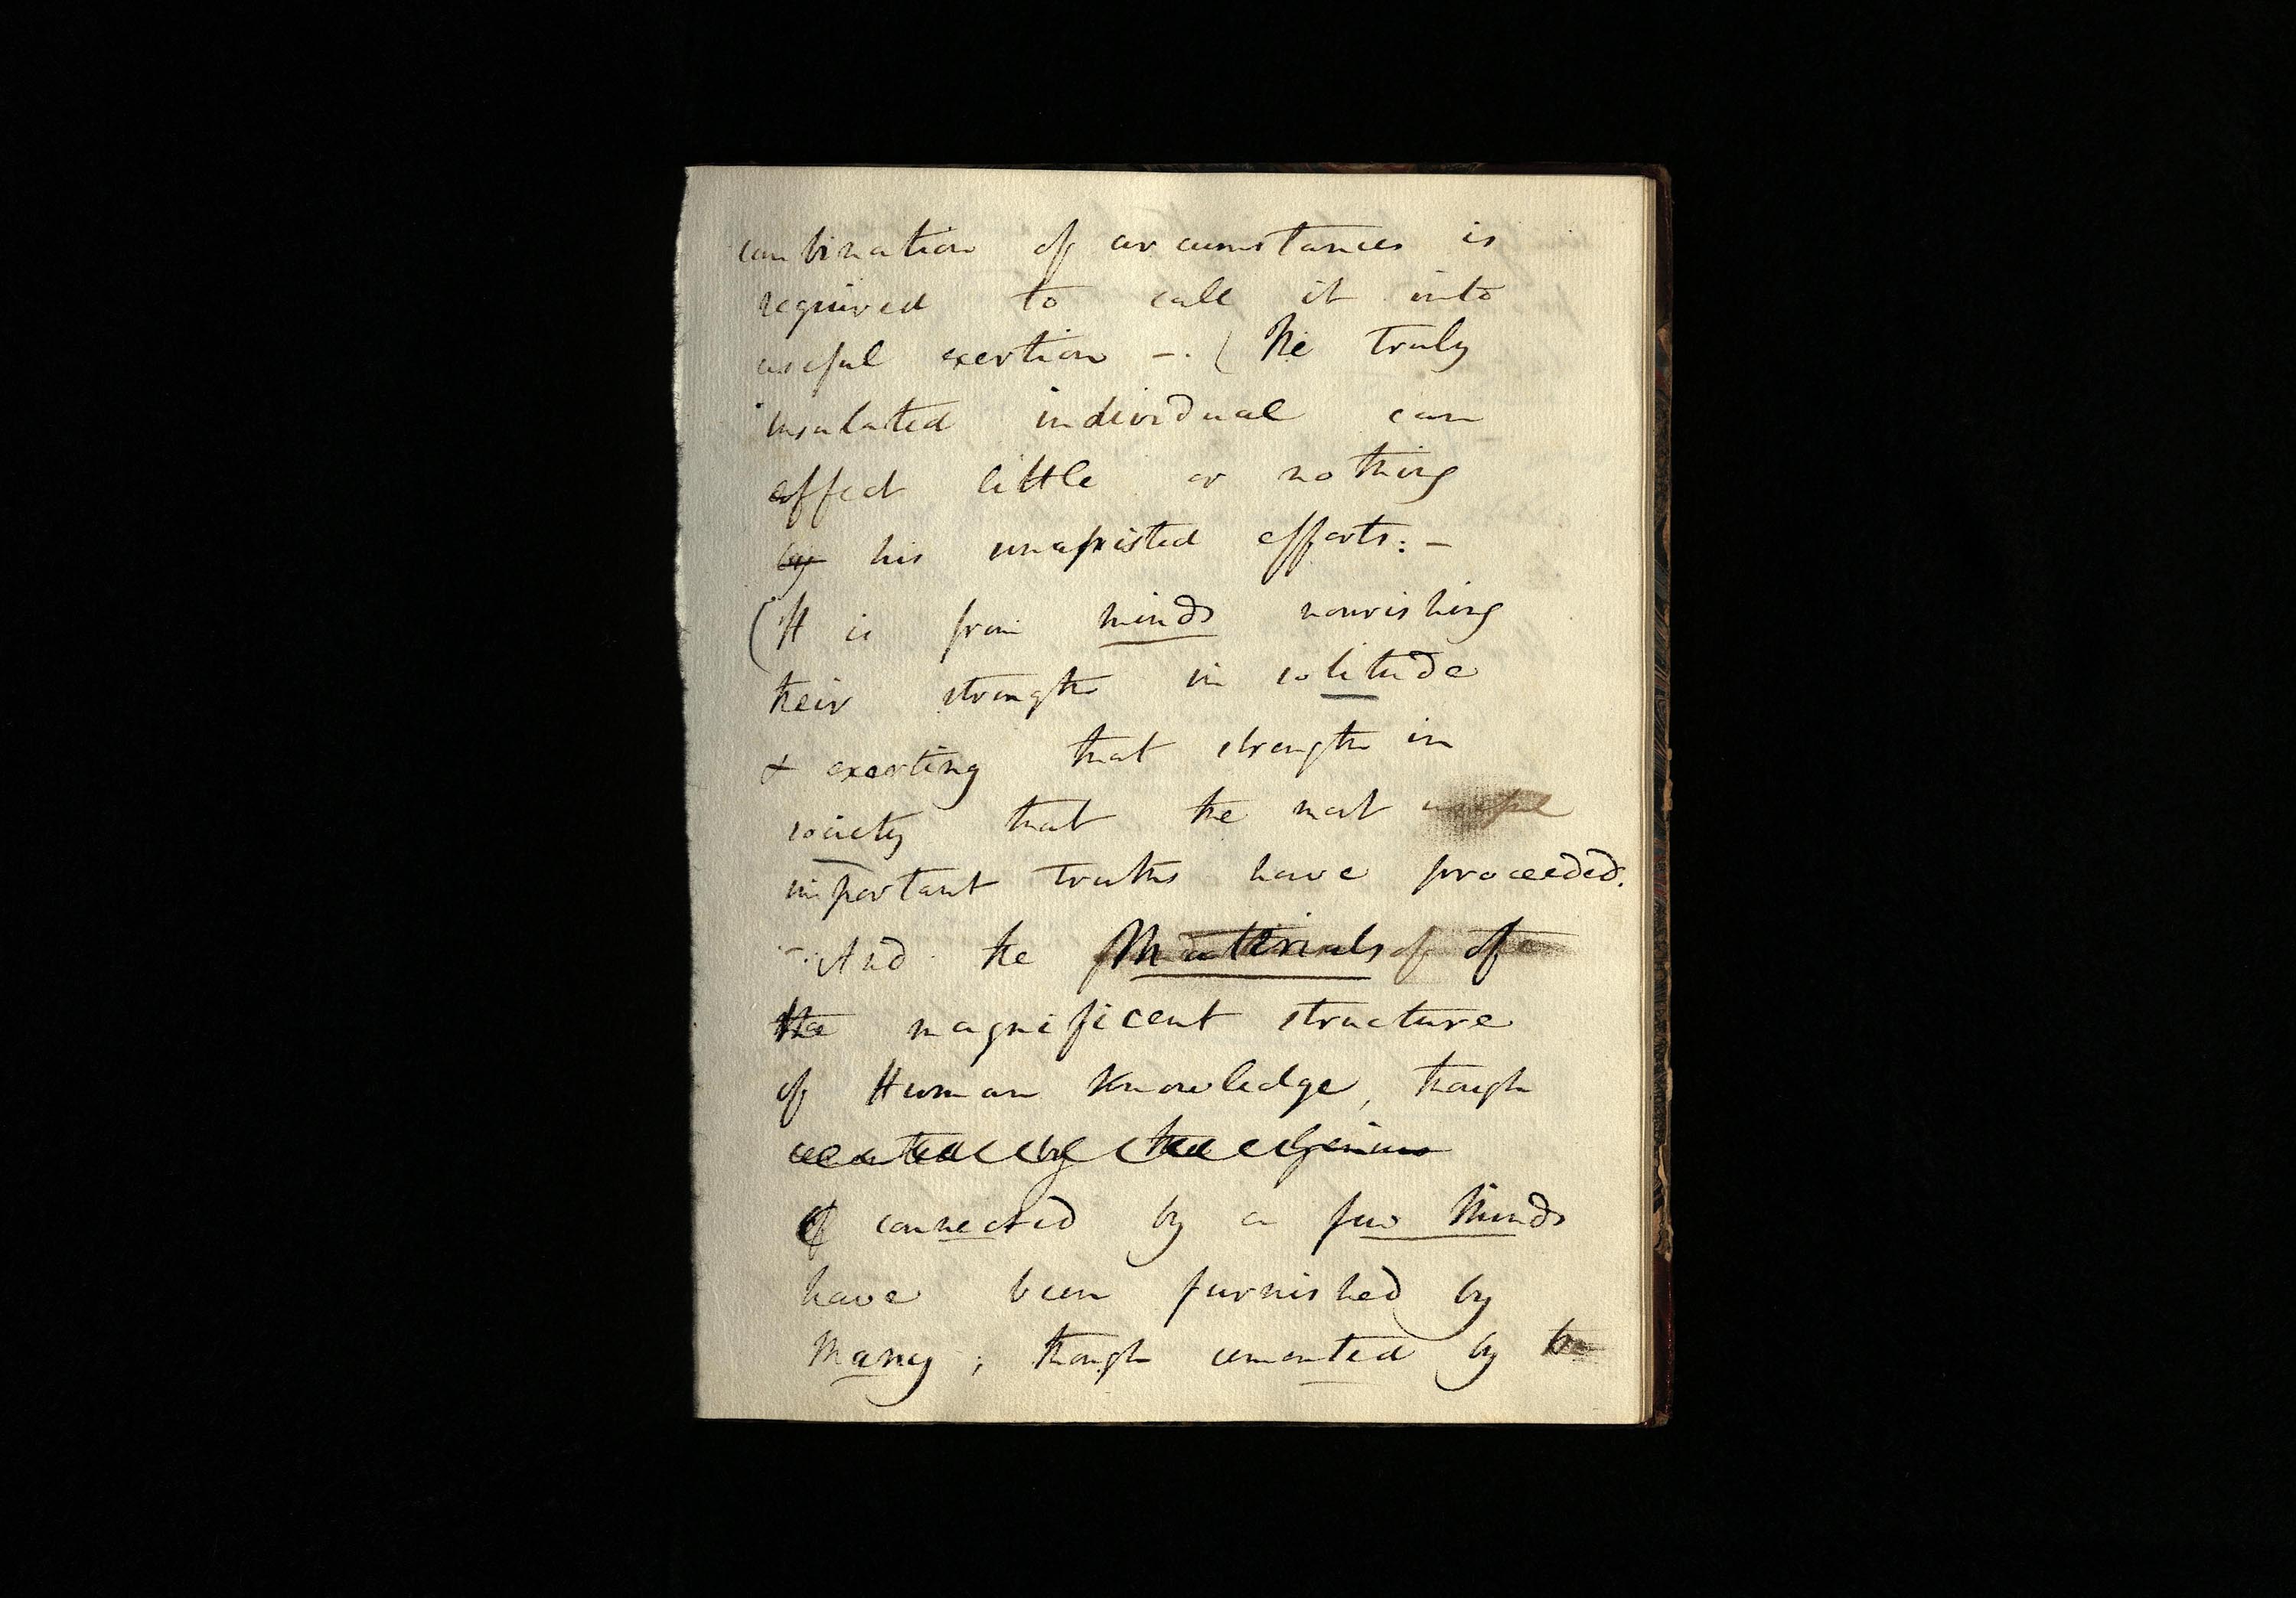 combination of circumstances is
required to call it into
useful exertion -. (The truly
insulated individual can
effect little or nothing
by his unassisted efforts: -
(It is from minds nourishing
their strength in solitude
& exerting that strength in
society that the most useful
important truths have proceeded.
- And the Materials of of
the magnificent structure
of Human Knowledge, though
by the Genius
of connected by a few Minds
have been furnished by
Many; though cemented by